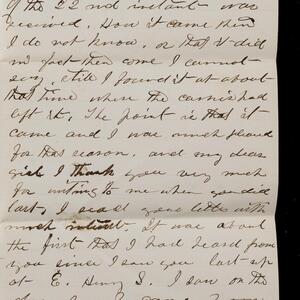 of the 22nd instant was
received. How it came then
I do not know, or that it did
in fact then come I cannot
say, still I found it at about
that time where the carrier had
left it. The point is that it
came and I was much pleased
for that reason. and my dear
girl I thank you very much
for writing to me when you did
last. I read your letter with
much interest. It was about
the first that I had heard from
you since I saw you last up
at E. Henry S. I saw on the